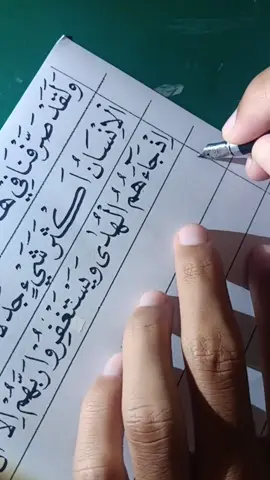 وَلَقَدْ صَرَّفْنَا فِي
الْاِنْسَانُ اَكْثَرَ شَيْءٍ جَدَلًا
اِذْ جَاءَهُمُ الْهُدٰى وَيَسْتَغْفِرُوْا رَبَّهُمْ اِلَّا